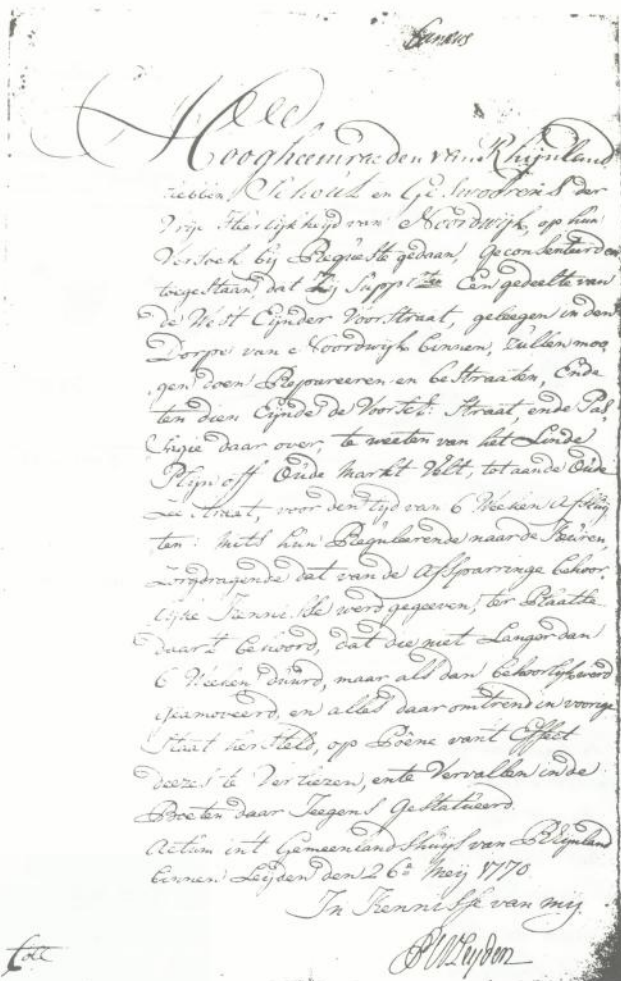 Hoogheemraden van Rhijnland
hebben Schout en Geswoorens der
Vrije Heerlijkheijd van Noordwijk, op hun
Versoek bij Requeste gedaan, geconsenteerd en
toegestaan, dat Zij Supplten Een gedeelte van
de West Eijnder Voorstraat, geleegen in den
Dorpe van Noordwijk binnen, zullen moo,
gen doen Repareeren en beStraaten, Ende
ten dien Eijnde de Voorsch: Straat, ende Pas
sagie daar over, te weeten van het Linde
Plijn off Oude Markt Velt, tot aande Oude
Zee Straat, voor den tijd van 6 Weeken Afsluij
ten: mits hun Reguleerende naar de Keuren,
Zorgdragende dat van de Afsparringe behoor,
lijke Kennisse werd gegeeven, ter Plaatse
daar't behoord, dat die niet Langer dan
6 Weeken duurd, maar als dan behoorlijk werd
geamoveerd, en alles daar omtrend in voorige
Staat hersteld, op Pœne van't Effect
deezes te Verliezen, en te Vervallen in de
Boeten daar Teegens Gestatueerd.
Actum in't Gemeenlandshuijs van Rhijnland
binnen Leijden den 26e Meij 1770.
In Kennisse van mij
Coll